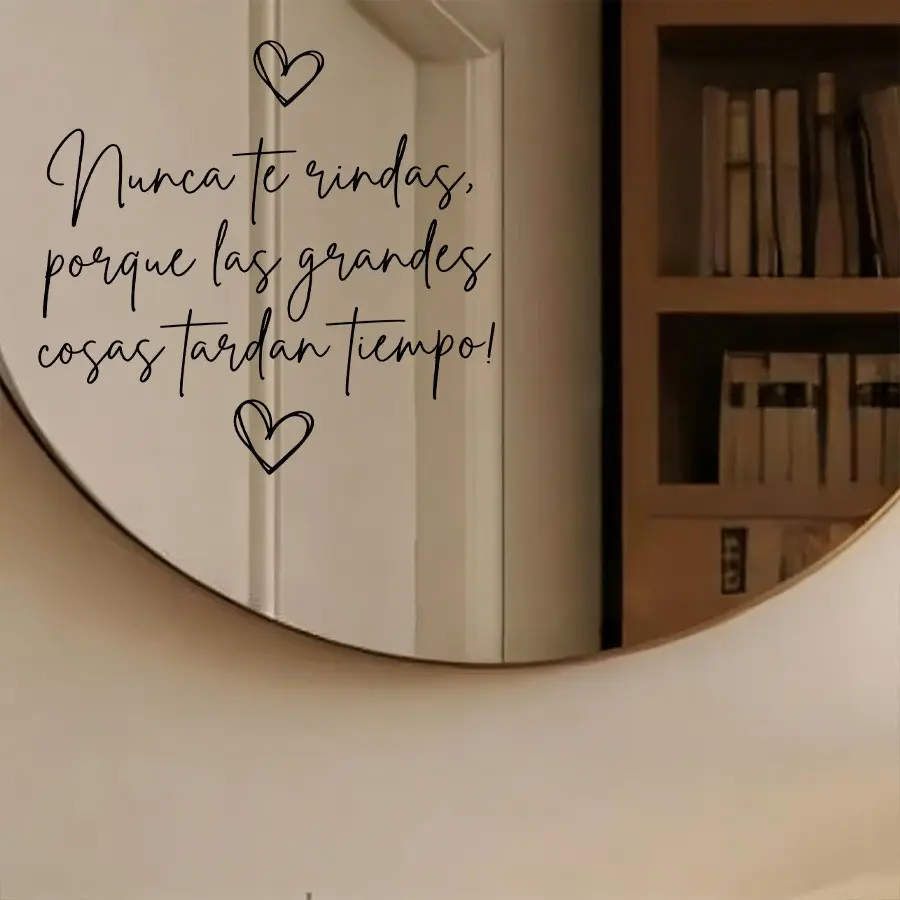 Nunca te rindas,
porque las grandes
cosas tardan tiempo!